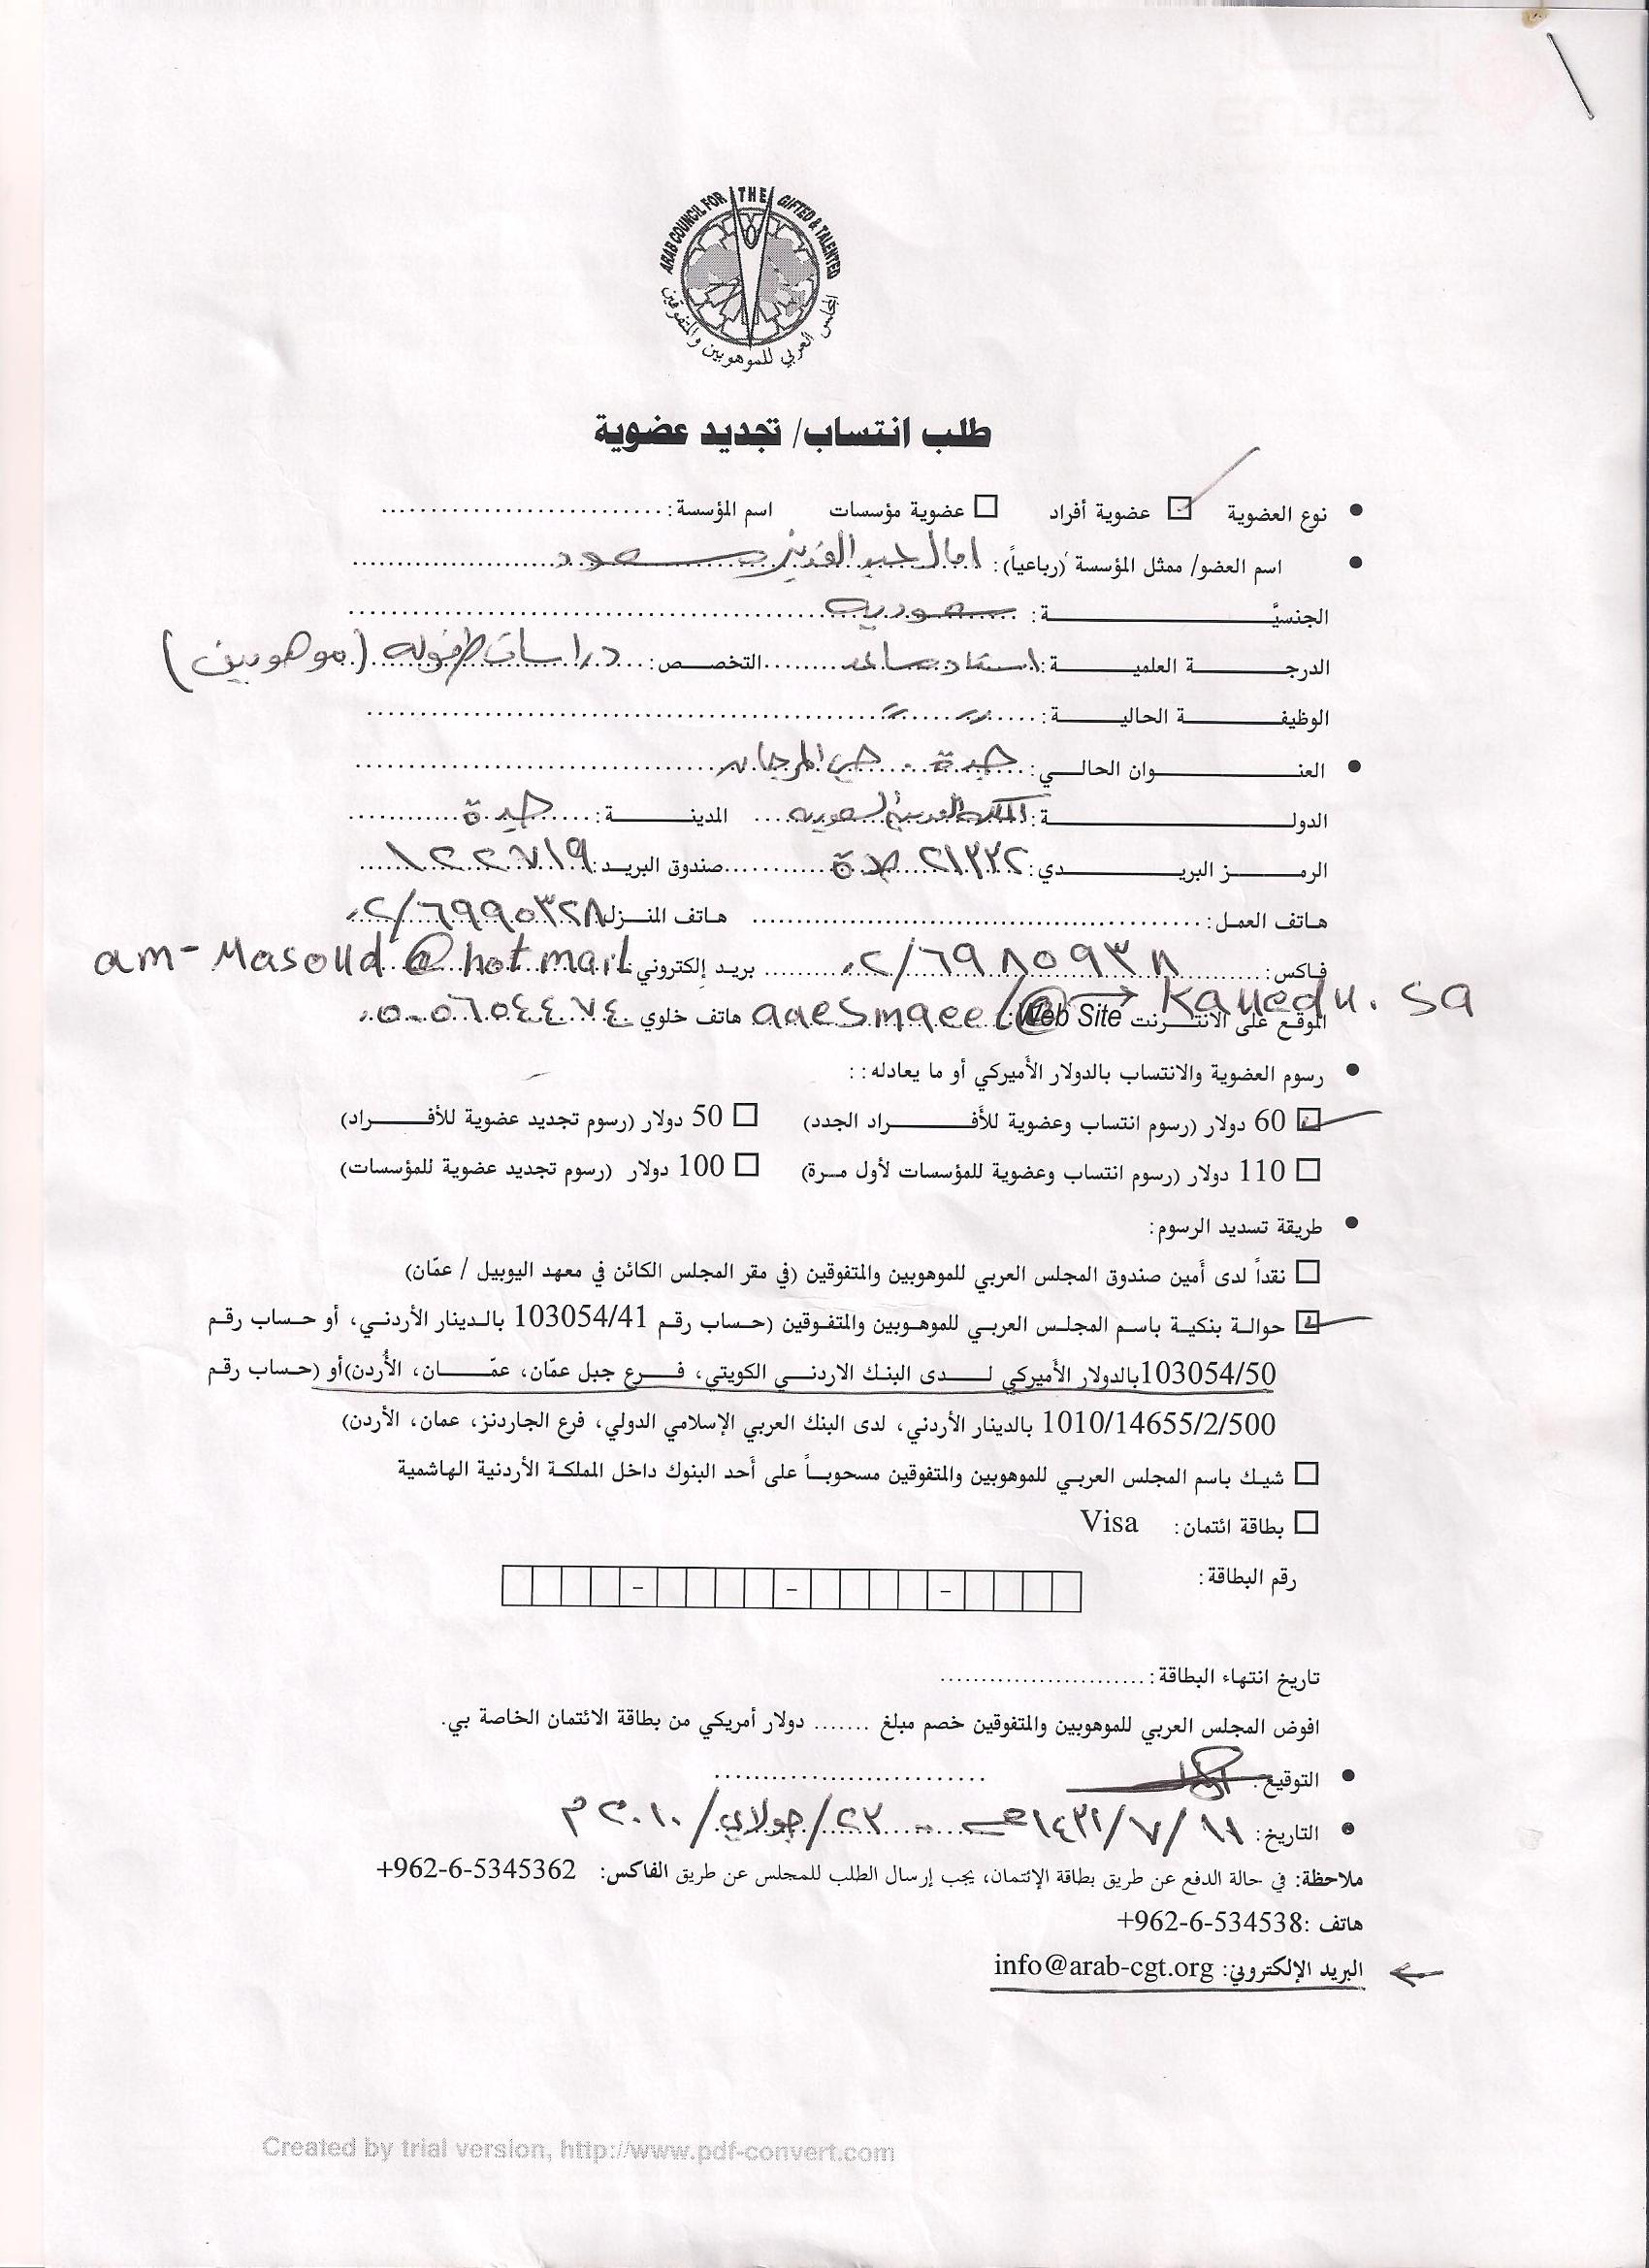 ARAB COUNCIL FOR THE GIFTED & TALENTED
المجلس العربي للموهوبين والمتفوقين
طلب انتساب/ تجديد عضوية
• نوع العضوية □ عضوية أفراد □ عضوية مؤسسات اسم المؤسسة:
• اسم العضو/ ممثل المؤسسة (رباعياً): امال عبد العزيز مسعود
الجنسيَّة: سعودية
الدرجة العلمية: استاذ مساعد التخصص: دراسات طفوله (موهوبين)
الوظيفة الحالية:
• العنوان الحالي: جدة - حي المرجان
الدولة: المملكة العربية السعودية المدينة: جدة
الرمز البريدي: ٢١٣٣٢ جدة صندوق البريد: ١٢٢٧١٩
هاتف العمل: هاتف المنزل ٠٢/٦٩٩٥٣٢٨
فاكس: ٠٢/٦٩٨٥٩٣٨ بريد إلكتروني: am-Masoud@hotmail
الموقع على الانترنت Web Site aaesmaeel@ → Kauedu.sa هاتف خلوي ٠٥٠٥٦٥٤٤٧٤
• رسوم العضوية والانتساب بالدولار الأميركي أو ما يعادله::
□ 60 دولار (رسوم انتساب وعضوية للأفراد الجدد) □ 50 دولار (رسوم تجديد عضوية للأفراد)
□ 110 دولار (رسوم انتساب وعضوية للمؤسسات لأول مرة) □ 100 دولار (رسوم تجديد عضوية للمؤسسات)
• طريقة تسديد الرسوم:
□ نقداً لدى أمين صندوق المجلس العربي للموهوبين والمتفوقين (في مقر المجلس الكائن في معهد اليوبيل / عمّان)
□ حوالة بنكية باسم المجلس العربي للموهوبين والمتفوقين (حساب رقم 103054/41 بالدينار الأردني، أو حساب رقم
103054/50بالدولار الأميركي لدى البنك الاردني الكويتي، فرع جبل عمّان، عمّان، الأردن)أو (حساب رقم
1010/14655/2/500 بالدينار الأردني، لدى البنك العربي الإسلامي الدولي، فرع الجاردنز، عمان، الأردن)
□ شيك باسم المجلس العربي للموهوبين والمتفوقين مسحوباً على أحد البنوك داخل المملكة الأردنية الهاشمية
□ بطاقة ائتمان: Visa
رقم البطاقة: - - -
تاريخ انتهاء البطاقة:
افوض المجلس العربي للموهوبين والمتفوقين خصم مبلغ ....... دولار أمريكي من بطاقة الائتمان الخاصة بي.
• التوقيع:
• التاريخ: ١١/٧/١٤٣١هـ - ٢٣/جولاي/٢٠١٠م
ملاحظة: في حالة الدفع عن طريق بطاقة الإئتمان، يجب إرسال الطلب للمجلس عن طريق الفاكس: +962-6-5345362
هاتف :+962-6-534538
البريد الإلكتروني: info@arab-cgt.org ←
Created by trial version, http://www.pdf-convert.com